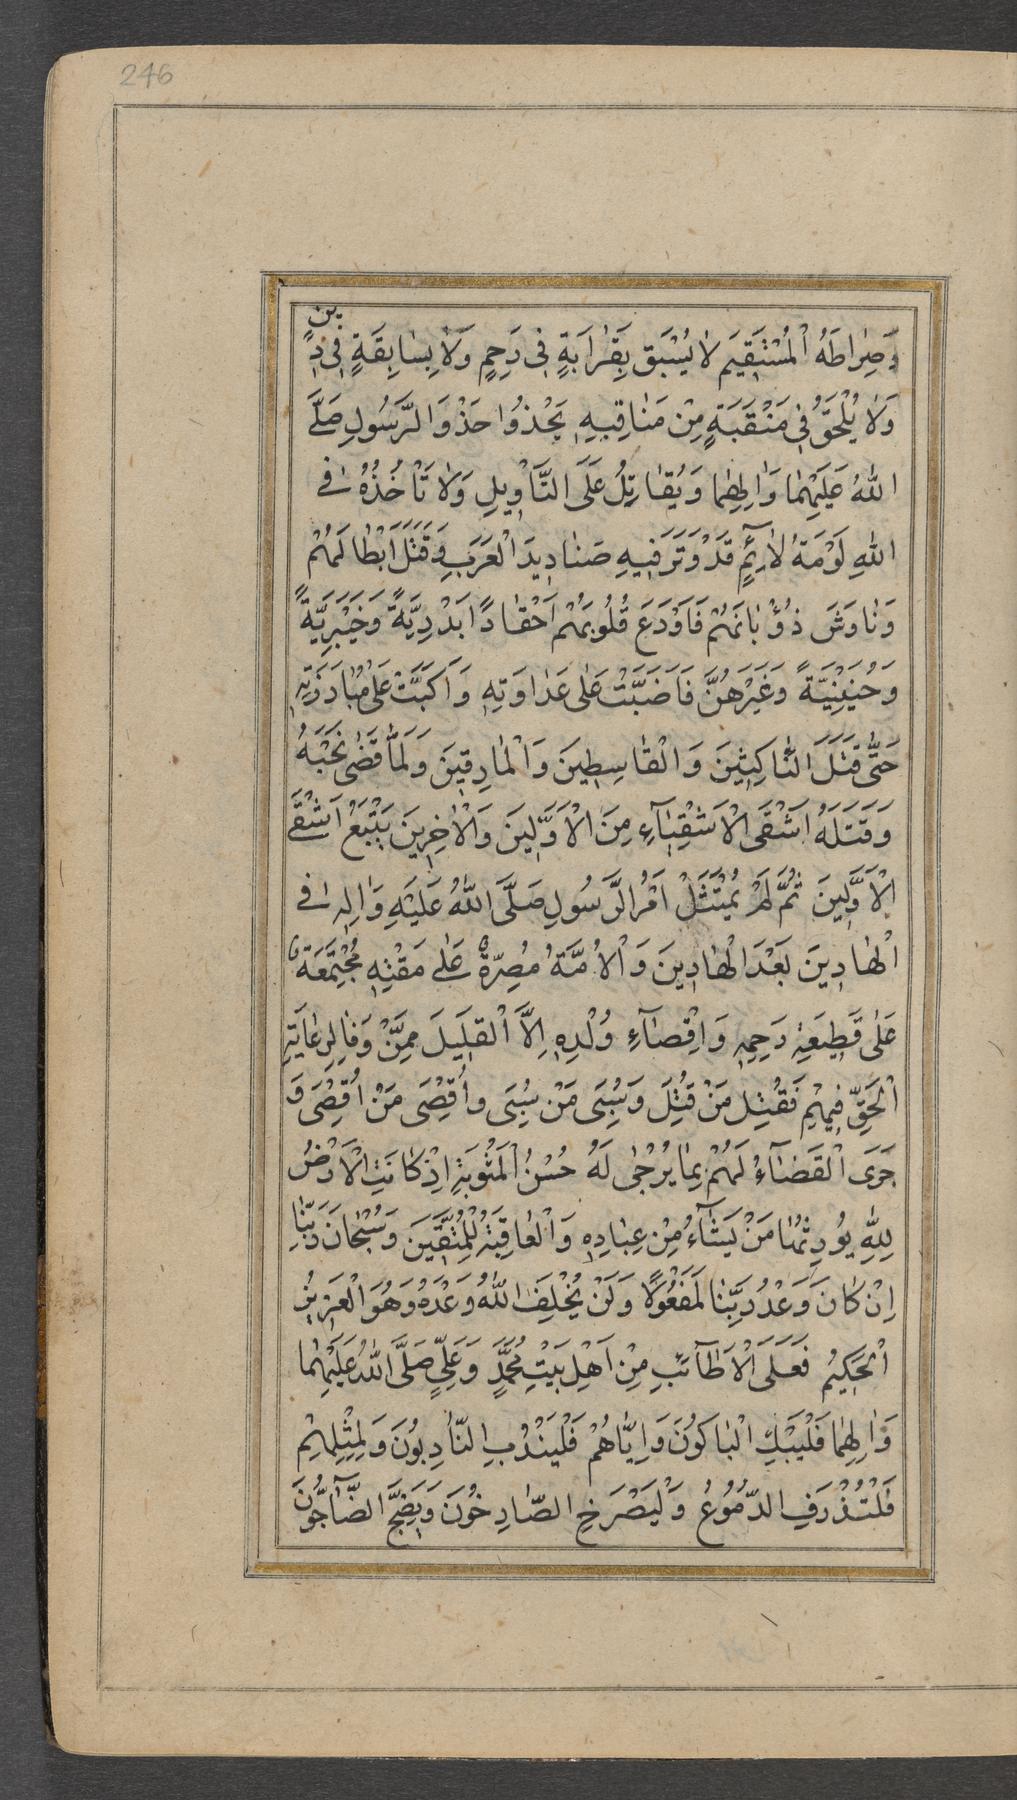 246
وَصِرٰاطَهُ الْمُسْتَقٖيمَ لاٰ يُسْبَقُ بِقَرٰابَةٍ فٖى رَحِمٍ وَلاٰ بِسٰابِقَةٍ فٖى دٖينٍ
وَلاٰ يُلْحَقُ فٖى مَنْقَبَةٍ مِنْ مَنٰاقِبِهٖ يَحْذُوا حَذْوَ الرَّسُولِ صَلَّى
اللهُ عَلَيْهِمٰا وَاٰلِهِمٰا وَيُقٰاتِلُ عَلَى التَّأْوٖيلِ وَلاٰ تَأْخُذُهُ فٖى
اللهِ لَوْمَةُ لاٰۤئِمٍ قَدْ وَتَرَ فٖيهِ صَنٰادٖيدَ الْعَرَبِ وَقَتَلَ اَبْطٰالَهُمْ
وَنٰاوَشَ ذُؤْبٰانَهُمْ فَاَوْدَعَ قُلُوبَهُمْ اَحْقٰادًا بَدْرِيَّةً وَخَيْبَرِيَّةً
وَحُنَيْنِيَّةً وَغَيْرَهُنَّ فَاَضَبَّتْ عَلٰى عَدٰاوَتِهٖ وَاَكَبَّتْ عَلٰى مُبٰارَزَتِهٖ
حَتّٰى قَتَلَ النّٰاكِثٖينَ وَالْقٰاسِطٖينَ وَالْمٰارِقٖينَ وَلَمّٰا قَضٰى نَحْبَهُ
وَقَتَلَهُ اَشْقَى الْاَشْقِيٰاۤءِ مِنَ الْاَوَّلٖينَ وَالْاٰخِرٖينَ يَتْبَعُ اَشْقَى
الْاَوَّلٖينَ ثُمَّ لَمْ يُمْتَثَلْ اَمْرُ الرَّسُولِ صَلَّى اللهُ عَلَيْهِ وَاٰلِهٖ فٖى
الْهٰادٖينَ بَعْدَ الْهٰادٖينَ وَالْاُمَّةُ مُصِرَّةٌ عَلٰى مَقْتِهٖ مُجْتَمِعَةٌ
عَلٰى قَطٖيعَةِ رَحِمِهٖ وَاِقْصٰاۤءِ وُلْدِهٖ اِلَّا الْقَلٖيلَ مِمَّنْ وَفٰا لِرِعٰايَةِ
الْحَقِّ فٖيهِمْ فَقُتِلَ مَنْ قُتِلَ وَسُبِىَ مَنْ سُبِىَ وَاُقْصِىَ مَنْ اُقْصِىَ وَ
جَرَى الْقَضٰاۤءُ لَهُمْ بِمٰا يُرْجٰى لَهُ حُسْنُ الْمَثُوبَةِ اِذْ كٰانَتِ الْاَرْضُ
لِلّٰهِ يُورِثُهٰا مَنْ يَشٰاۤءُ مِنْ عِبٰادِهٖ وَالْعٰاقِبَةُ لِلْمُتَّقٖينَ وَسُبْحٰانَ رَبِّنٰا
اِنْ كٰانَ وَعْدُ رَبِّنٰا لَمَفْعُولًا وَلَنْ يُخْلِفَ اللهُ وَعْدَهُ وَهُوَ الْعَزٖيزُ
الْحَكٖيمُ فَعَلَى الْاَطٰاۤئِبِ مِنْ اَهْلِ بَيْتِ مُحَمَّدٍ وَعَلِىٍّ صَلَّى اللهُ عَلَيْهِمٰا
وَاٰلِهِمٰا فَلْيَبْكِ الْبٰاكُونَ وَاِيّٰاهُمْ فَلْيَنْدُبِ النّٰادِبُونَ وَلِمِثْلِهِمْ
فَلْتُذْرَفِ الدُّمُوعُ وَلْيَصْرَخِ الصّٰارِخُونَ وَيَضِجَّ الضّٰاۤجُّونَ